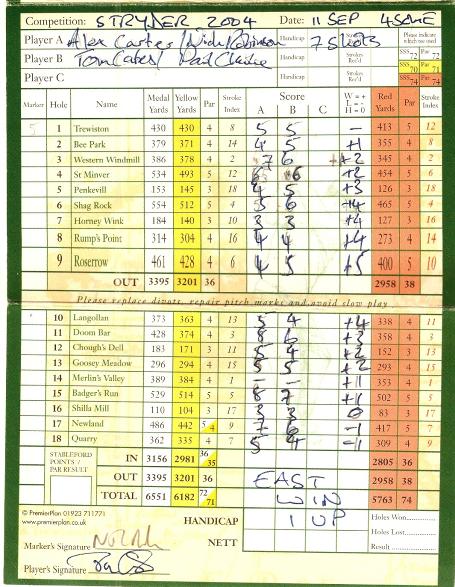 Competition: STRYDER 2004 Date: 11 SEP 4SOME
Player A Alex Carter / Nick Robinson Handicap 7 Shots Strokes Rec'd Please indicate which tee used
SSS 72 Par 72
Player B Tom Cates / Handicap Strokes Rec'd SSS 70 Par 71
Player C Handicap Strokes Rec'd SSS 74 Par 74
Marker Hole Medal Yards Yellow Yards Par Stroke Index Score A B C W = + L = - H = 0 Red Yards Par Stroke Index
1 Trewiston 430 430 4 8 5 5 - 413 5 12
2 Bee Park 379 371 4 14 4 5 +1 355 4 8
3 Western Windmill 386 378 4 2 7 6 +2 345 4 2
4 St Minver 534 493 5 12 6 6 +2 454 5 6
5 Penkevill 153 145 3 18 4 5 +3 126 3 18
6 Shag Rock 554 512 5 4 5 6 +4 465 5 4
7 Horney Wink 184 140 3 10 3 3 +4 127 3 16
8 Rump's Point 314 304 4 16 4 4 +4 273 4 14
9 Roserrow 461 428 4 6 4 5 +5 400 5 10
OUT 3395 3201 36 2958 38
Please replace divots, repair pitch marks and avoid slow play
10 Langollan 373 363 4 13 5 4 +4 338 4 11
11 Doom Bar 428 374 4 3 8 6 +3 358 4 3
12 Chough's Dell 183 171 3 11 5 4 +2 152 3 13
13 Goosey Meadow 296 294 4 15 5 5 +2 293 4 15
14 Merlin's Valley 389 384 4 1 - - +1 353 4 1
15 Badger's Run 529 514 5 5 8 7 +1 502 5 5
16 Shilla Mill 110 104 3 17 3 3 0 83 3 17
17 Newland 486 442 5 4 9 7 6 -1 417 5 7
18 Quarry 362 335 4 7 5 4 -1 309 4 9
STABLEFORD POINTS / PAR RESULT IN 3156 2981 36 35 2805 36
OUT 3395 3201 36 EAST 2958 38
TOTAL 6551 6182 72 71 WIN 5763 74
© PremierPlan 01923 711771
www.premierplan.co.uk
HANDICAP 1 UP Holes Won
NETT Holes Lost
Marker's Signature Result
Player's Signature